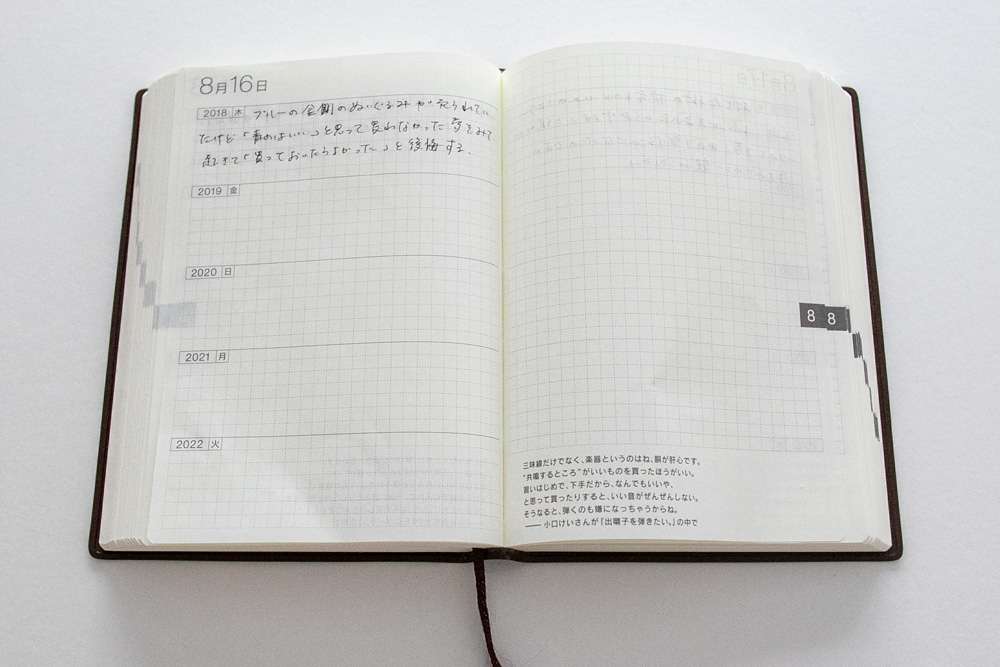 8月16日
2018 木 ブルーの金剛のぬいぐるみが売られてい
たけど「青のはいい」と思って買わなかった夢をみて
起きて「買っておいたらよかった」と後悔する。
2019 金
2020 日
2021 月
2022 火
8 8
三味線だけでなく、楽器というのはね、胴が肝心です。
“共鳴するところ”がいいものを買ったほうがいい。
習いはじめで、下手だから、なんでもいいや、
と思って買ったりすると、いい音がぜんぜんしない。
そうなると、弾くのも嫌になっちゃうからね。
―― 小口けいさんが『出囃子を弾きたい。』の中で